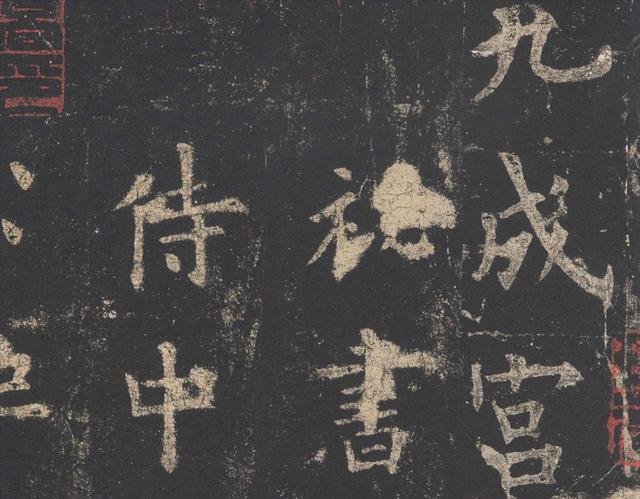 九成宮
祕書
侍中